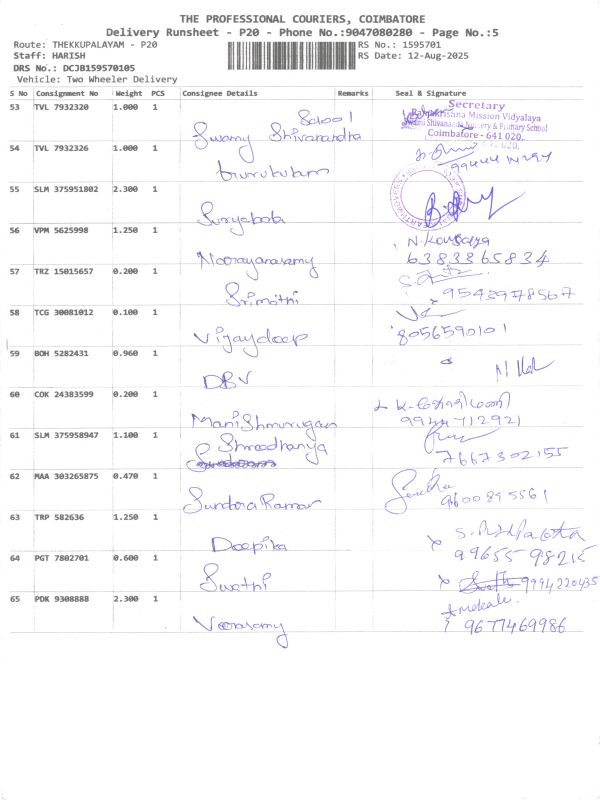 THE PROFESSIONAL COURIERS, COIMBATORE
Delivery Runsheet - P20 - Phone No.:9047080280 - Page No.:5
Route: THEKKUPALAYAM - P20 RS No.: 1595701
Staff: HARISH RS Date: 12-Aug-2025
DRS No.: DCJB159570105
Vehicle: Two Wheeler Delivery
S No Consignment No Weight PCS Consignee Details Remarks Seal & Signature
53 TVL 7932320 1.000 1 Swamy Shivanandha School
Secretary
Ramakrishna Mission Vidyalaya
Swami Shivananda Nursery & Primary School
Coimbatore - 641 020.
54 TVL 7932326 1.000 1 Gurukulam
55 SLM 375951802 2.300 1 Suryabala
56 VPM 5625998 1.250 1 Naarayanasamy N. Kousalya 6383865834
57 TRZ 15015657 0.200 1 Srimathi 9543978567
58 TCG 30081012 0.100 1 Vijaydeep 8056590101
59 BOH 5282431 0.960 1 DBV
60 COK 24383599 0.200 1 ManiShmurugan 9944712921
61 SLM 375958947 1.100 1 Shreedhanya 7667302155
62 MAA 303265875 0.470 1 Sundara Raman 9600895561
63 TRP 582636 1.250 1 Deepika 99655 98215
64 PGT 7802701 0.600 1 Swathi 9994220435
65 PDK 9308888 2.300 1 Veerasamy 9677469986